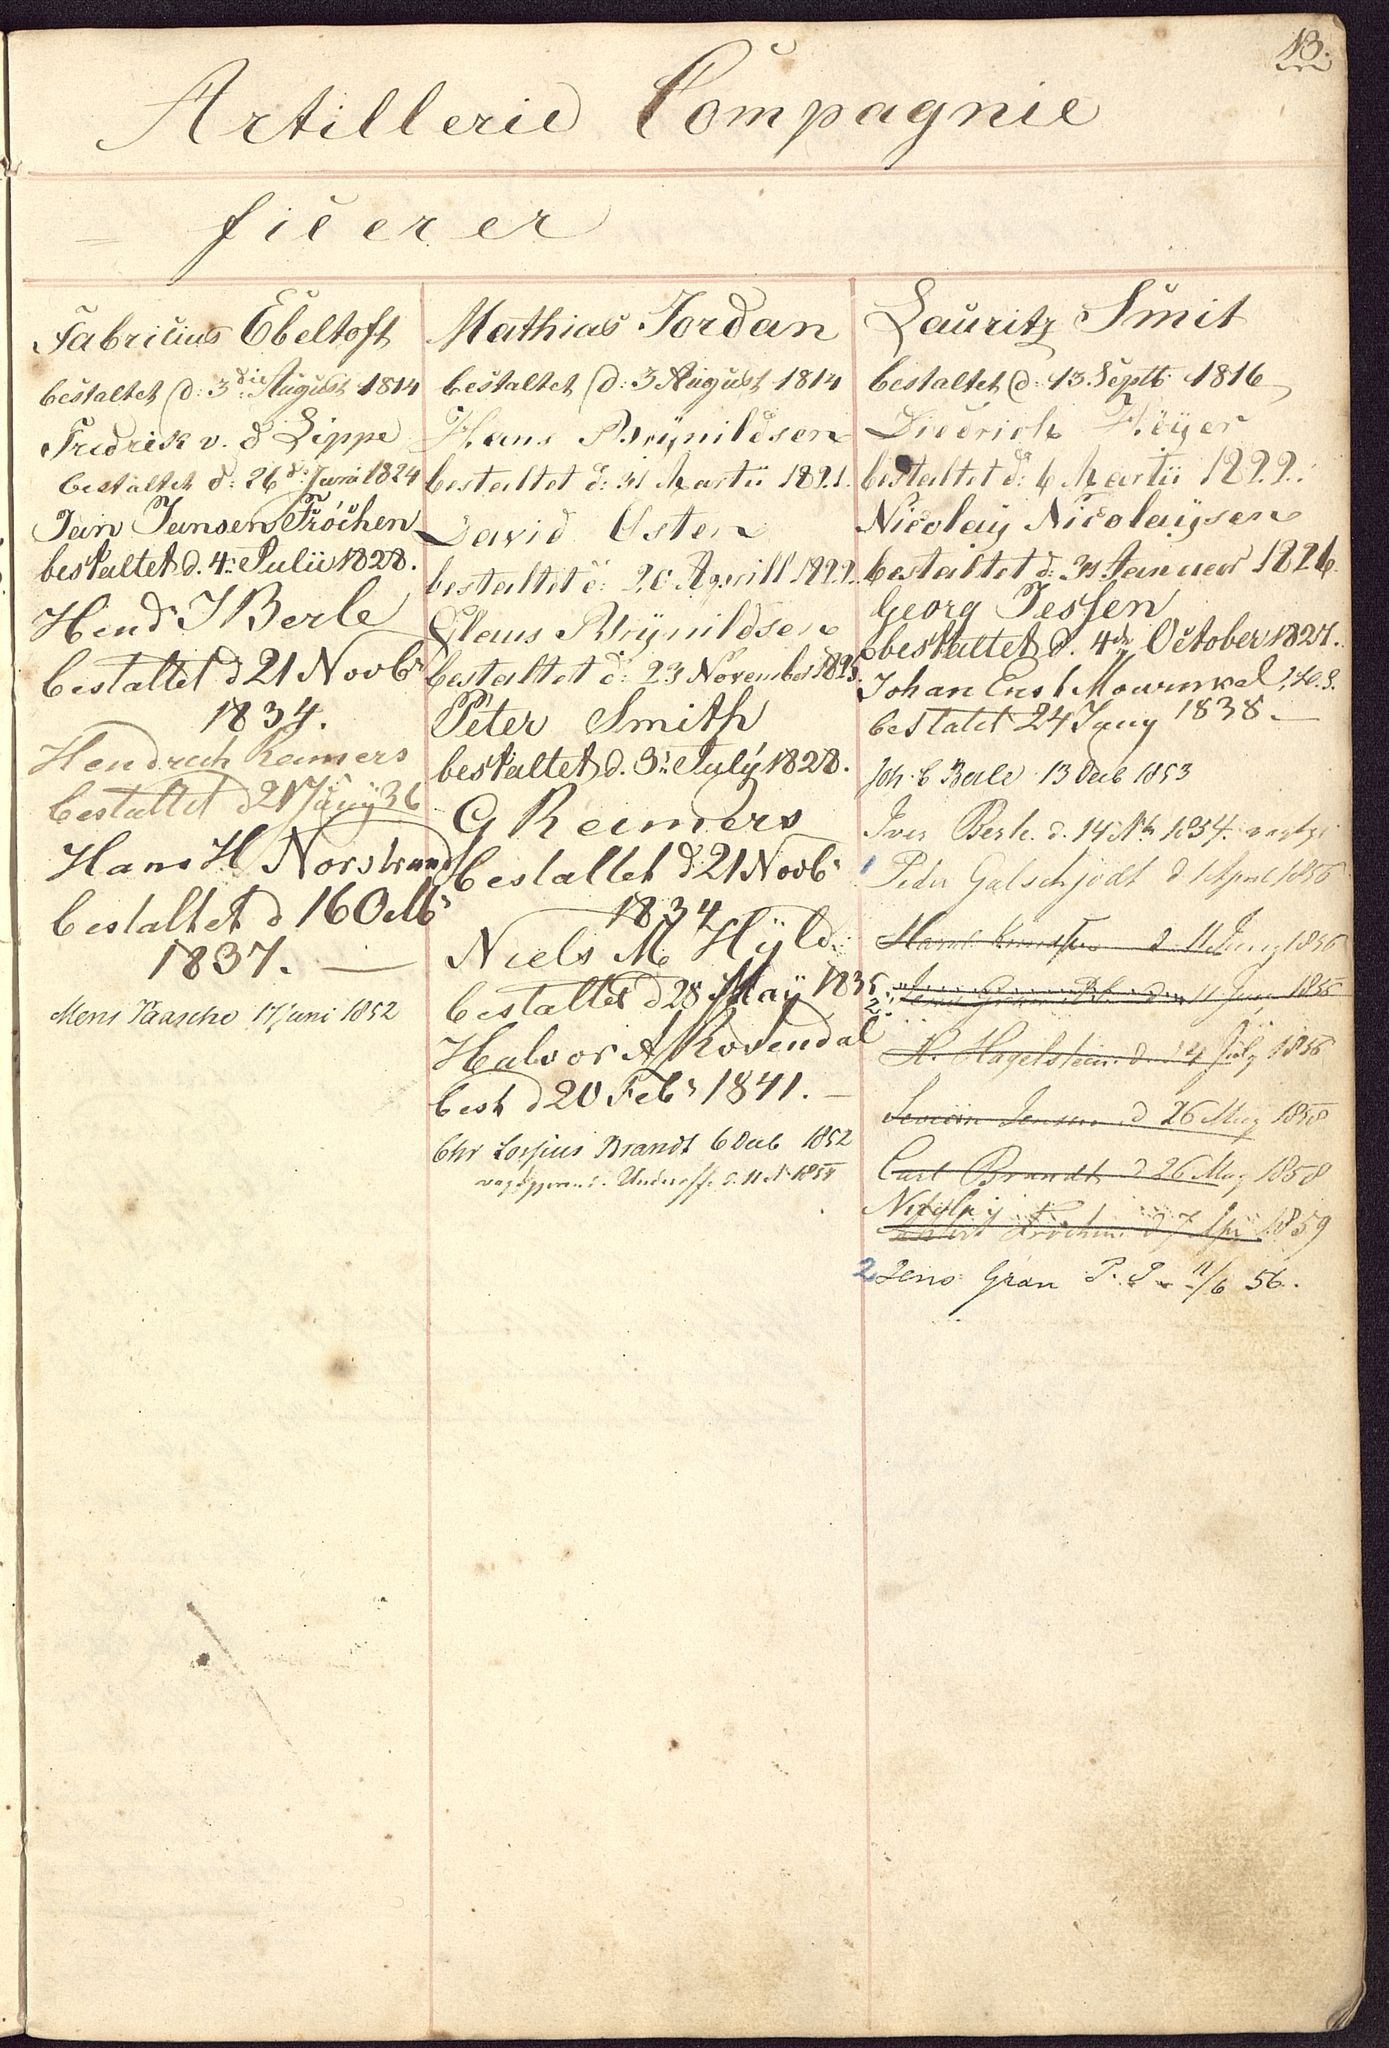 13.
Artillerie Compagnie
= ficerer
Fabricius Ebeltoft
bestaltet d: 3die August 1814
Fredrik v. d Lippe
bestaltet d: 26 d: Juni 1824
Jan Jansen Fröchen
bestaltet d. 4: Julii 1828.
Hend J Berle
bestaltet d 21 Novbr
1834.
Hendrich Reimers
bestaltet d 21 Jany 36
Hans H Norstrand
bestaltet d 16 Octbr
1837. —
Mens Paasche 17 Juni 1852
Mathias Jordan
bestaltet d: 3 August 1814
Hans Brynildsen
bestaltet d: 31 Martii 1821.
David Osten
bestaltet d: 20 Aprill 1822.
Claus Brynildsen
bestaltet d: 23 November 1825.
Peter Smith
bestaltet d. 3: July 1828.
G Reimers
bestaltet d: 21 Novbr
1834
Niels M Hyld
bestaltet d 28 May 1835
Halvor A Rosendal
best d 20 Febr 1841. —
Chr Brandt 6 Decb 1852
Underoff. d. 11
Lauritz Smit
bestaltet d: 13 Septb 1816
Diedrich Höyer
bestaltet d: 6 Martii 1822.
Nicolay Nicolaysen
bestaltet d: 31 Januar 1826.
Georg Jessen
bestaltet d. 4de October 1827.
Johan Ernst Mowinckel
bestalet 24 Jany 1838 —
Joh: C Berle 13 Decb 1853
Iver Berle d. 14
1 Peder Galschjødt d 1 April 1856
d 11 Juny 1856
2: Jens Gran d 11 Juny 1856
H. Hagelsteen d July 1856
Severin Jensen d 26 May 1858
Carl Brandt d 26 May 1858
Nicolay
Frochen d 7 Apr 1859
2 Jens Gran P. S 11/6 56.